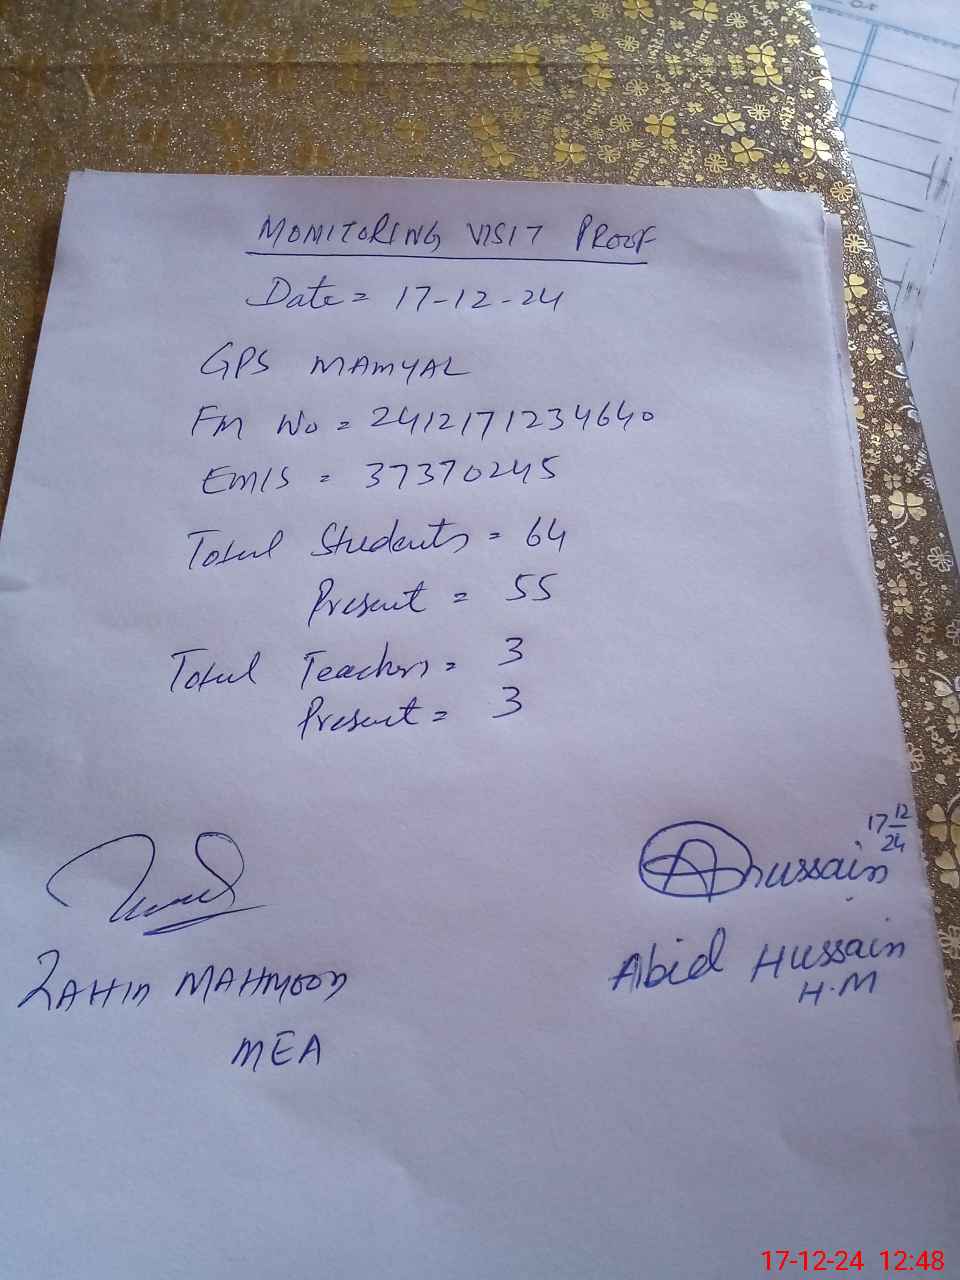 MONITORING VISIT PROOF
Date = 17-12-24
GPS MAMYAL
Fm No = 2412171234640
EMIS = 37370245
Total Students = 64
Present = 55
Total Teachers = 3
Present = 3
17 12/24
Hussain
ZAHID MAHMOOD
MEA
Abid Hussain
H.M
17-12-24 12:48